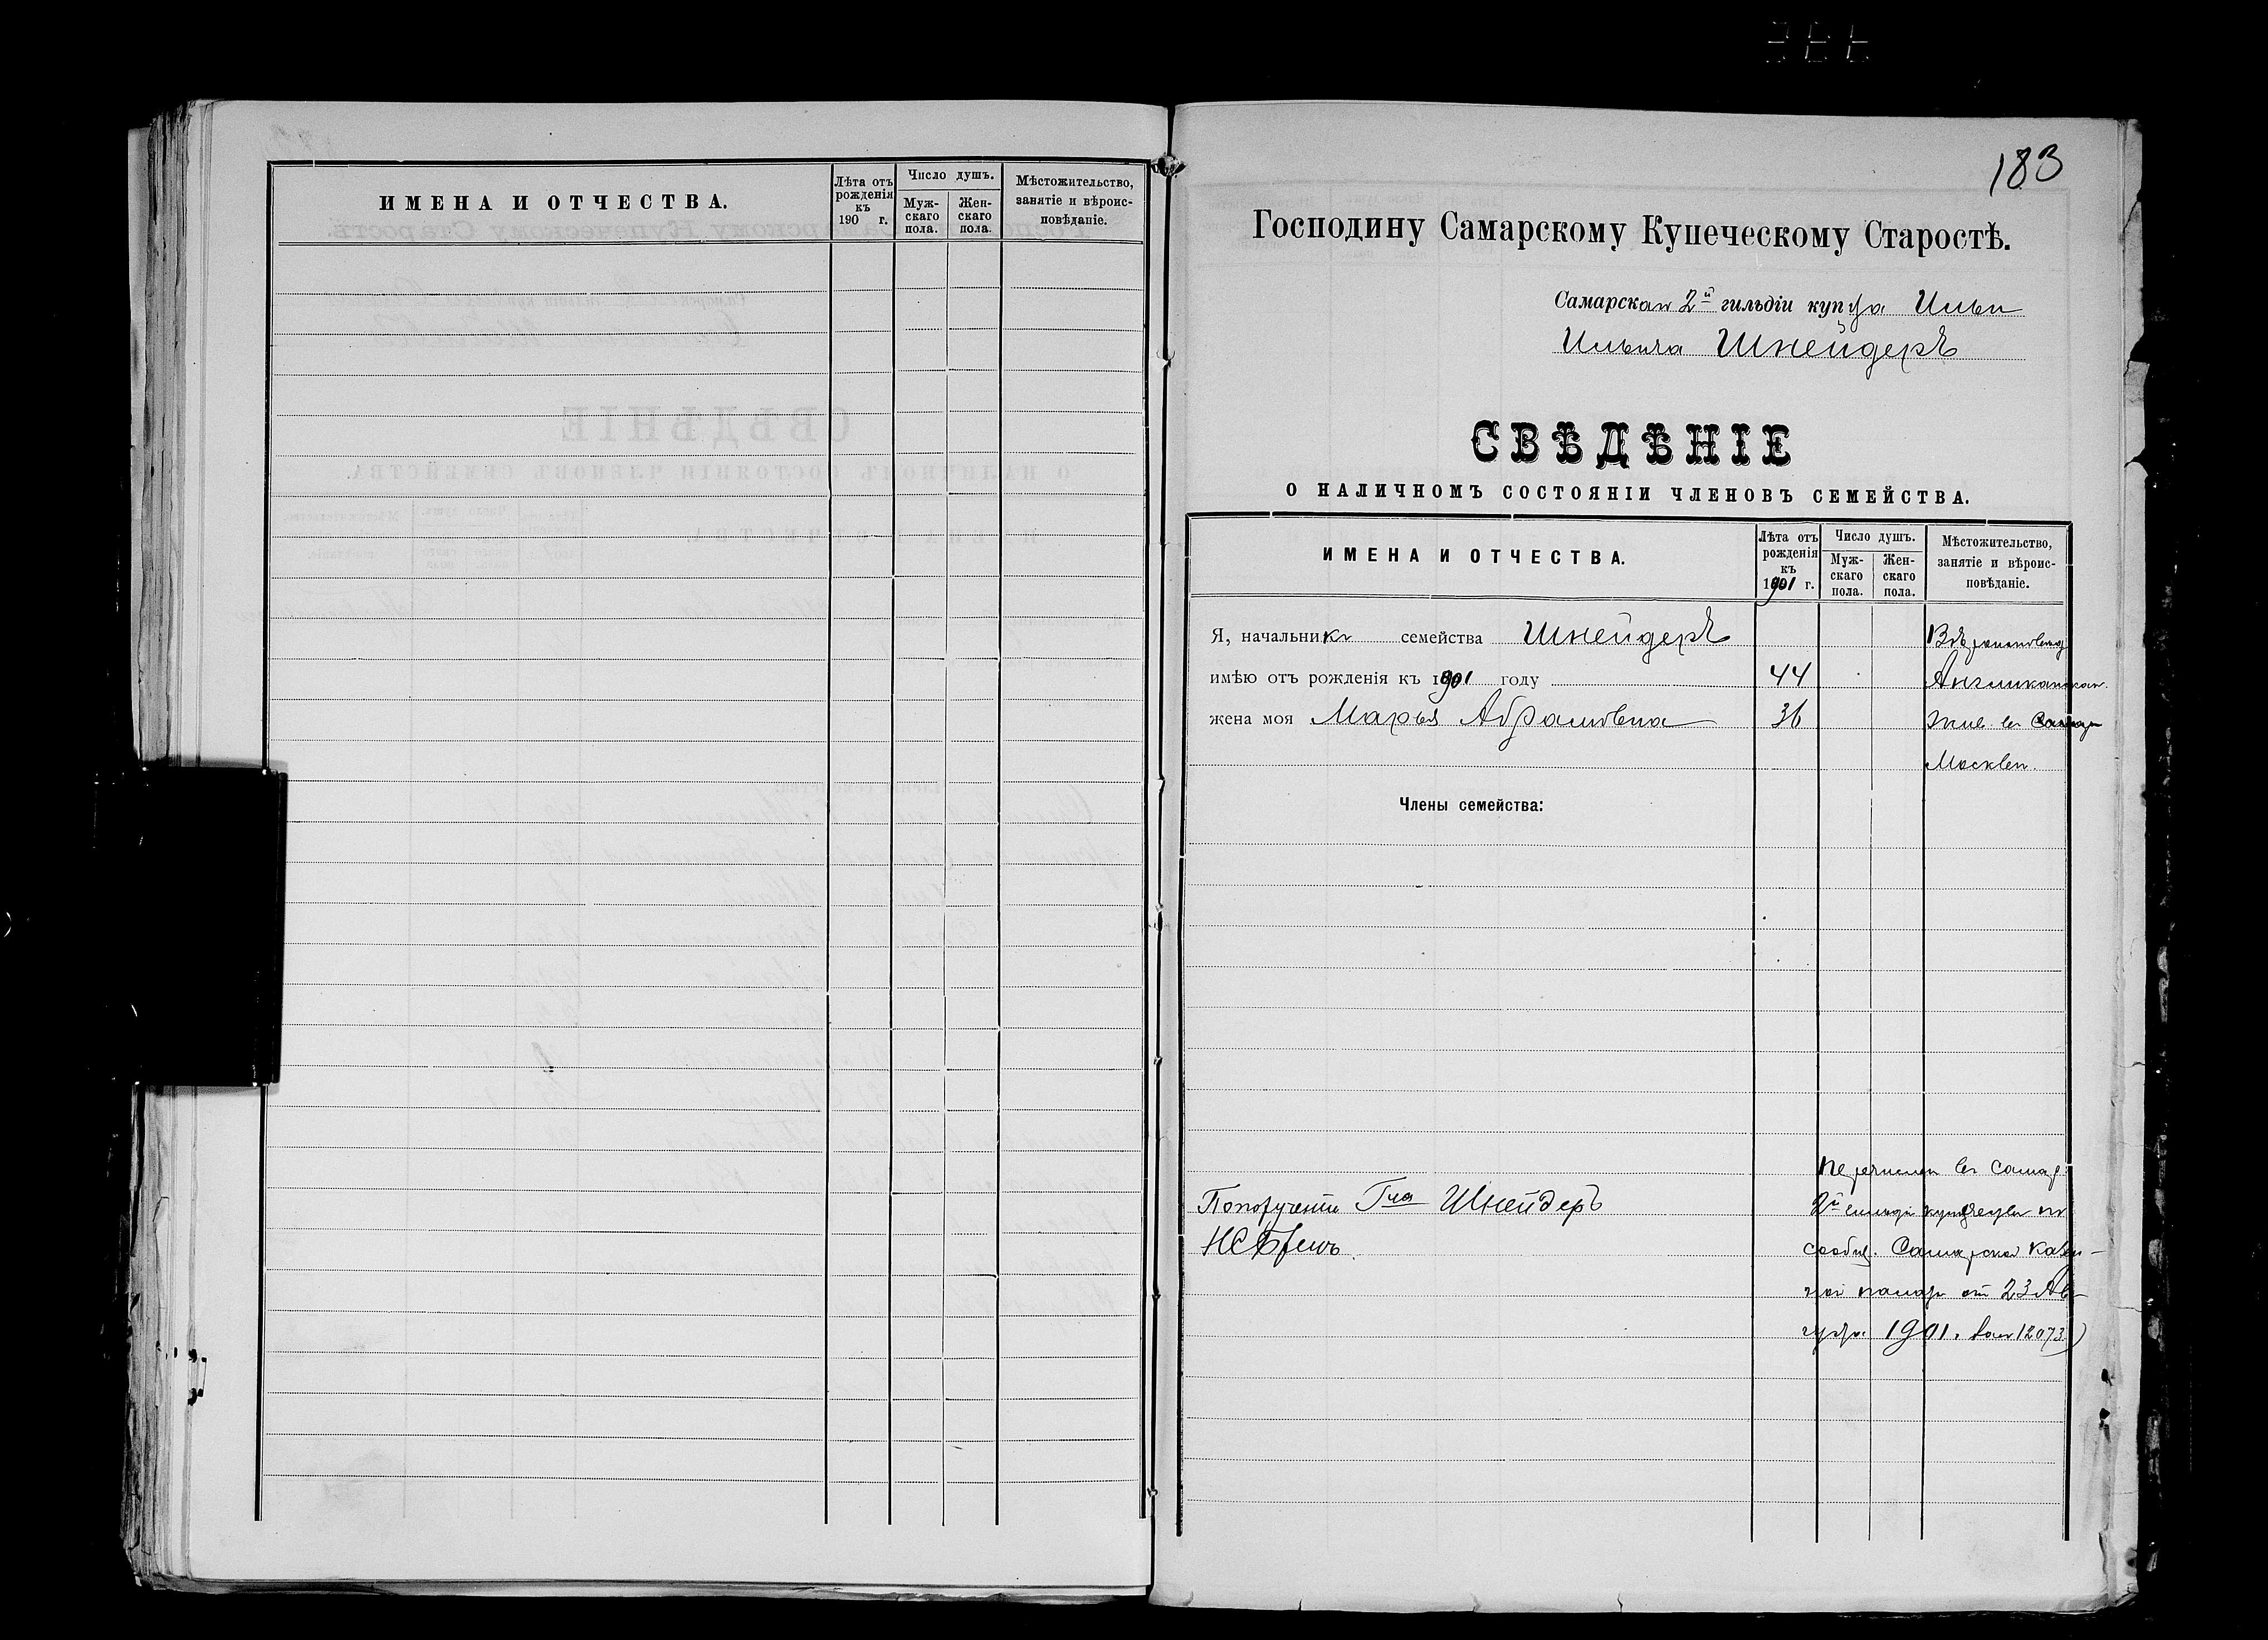 ИМЕНА И ОТЧЕСТВА.
Лѣта отъ рожденія къ 190 г.
Число душъ.
Мужскаго пола.
Женскаго пола.
Мѣстожительство, занятіе и вѣроисповѣданіе.
183
Господину Самарскому Купеческому Старостѣ.
Самарскаго 2й гильдіи купца Ильи
Ильича Шнейдеръ
СВѢДѢНІЕ
О НАЛИЧНОМЪ СОСТОЯНІИ ЧЛЕНОВЪ СЕМЕЙСТВА.
ИМЕНА И ОТЧЕСТВА.
Лѣта отъ рожденія къ 1901 г.
Число душъ.
Мужскаго пола.
Женскаго пола.
Мѣстожительство, занятіе и вѣроисповѣданіе.
Я, начальникъ семейства Шнейдеръ
имѣю отъ рожденія къ 1901 году 44 Англиканскаго
жена моя Марья Абрамовна 36 жив. въ
Москвѣ.
Члены семейства:
въ Самар.
По порученію Гна Шнейдеръ 2й гильдіи по
сообщ. Самарской Казен-
ной палаты от 23 Ав-
густа 1901. 12073)